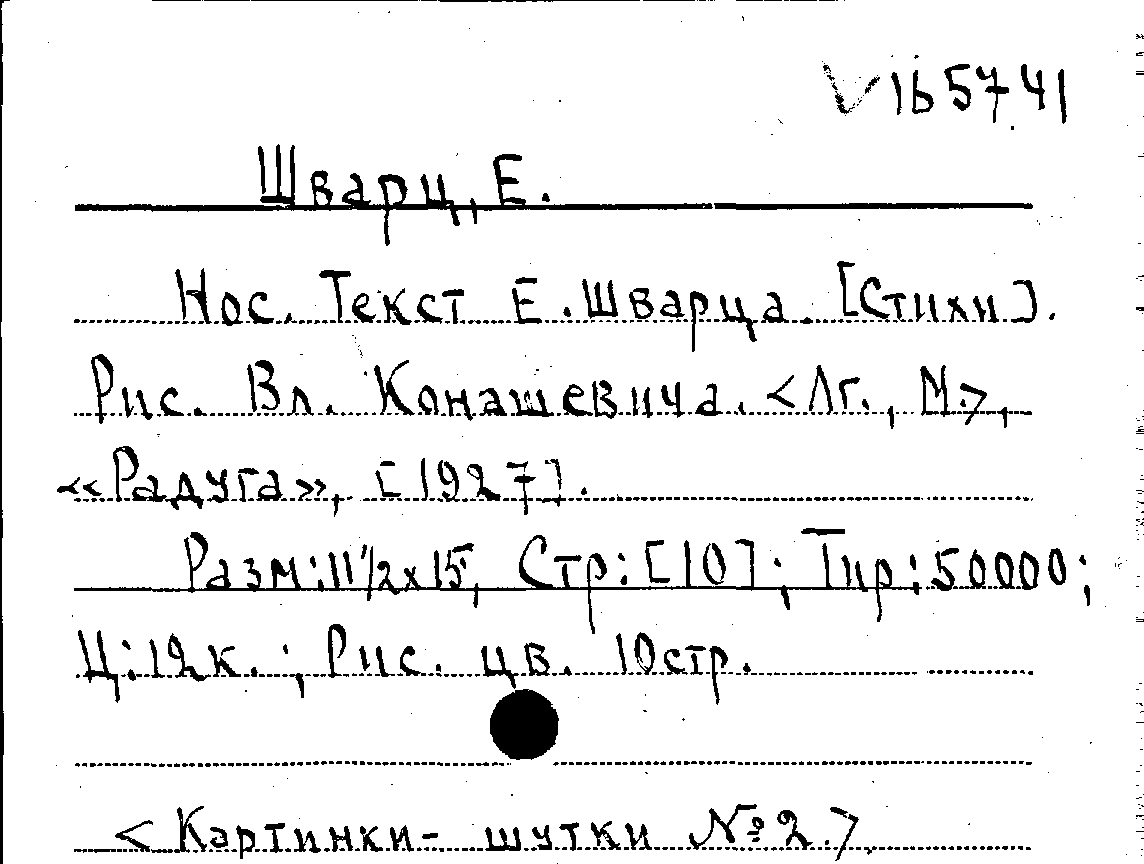 V 165741
Шварц, Е.
Нос. Текст Е. Шварца. [Стихи].
Рис. Вл. Конашевича. <Лг., М.>,
«Радуга», [1927].
Разм: 11 1/2 x 15, Стр: [10]; Тир: 50000;
Ц: 12 к.; Рис. цв. 10 стр.
<Картинки-шутки № 2.>